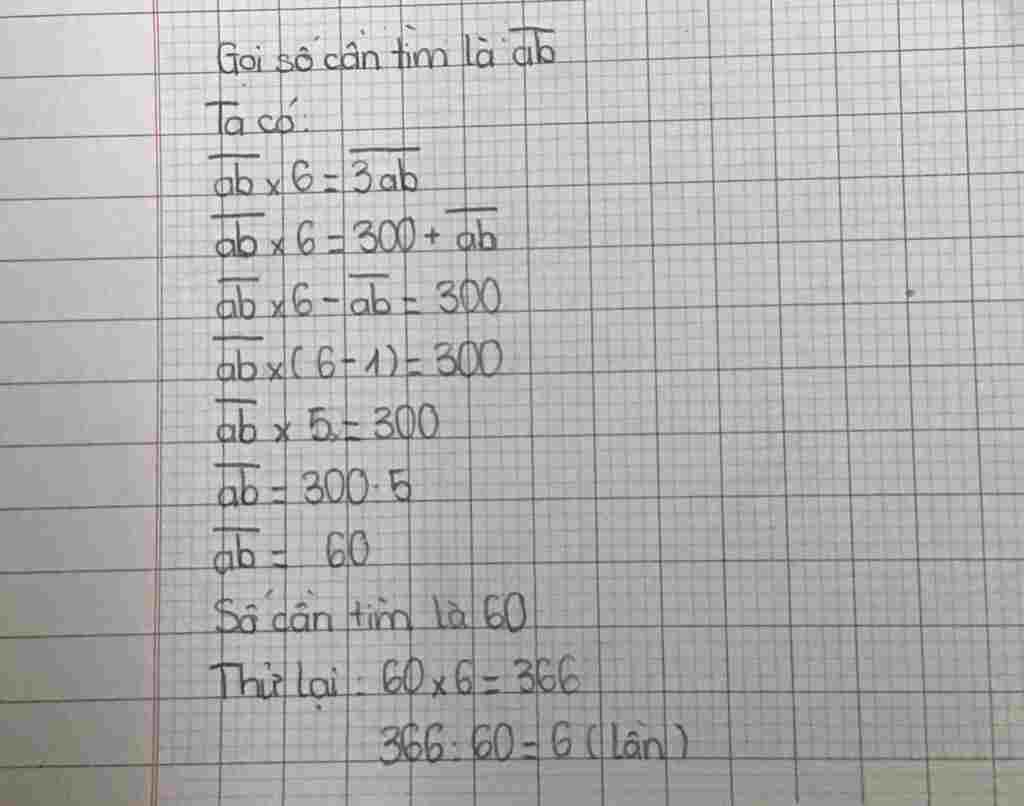 Gọi số cần tìm là a̅b̅
Ta có:
a̅b̅ × 6 = 3̅a̅b̅
a̅b̅ × 6 = 300 + a̅b̅
a̅b̅ × 6 - a̅b̅ = 300
a̅b̅ × (6 - 1) = 300
a̅b̅ × 5 = 300
a̅b̅ = 300 . 5
a̅b̅ = 60
Số cần tìm là 60
Thử lại : 60 × 6 = 366
366 : 60 = 6 (lần)